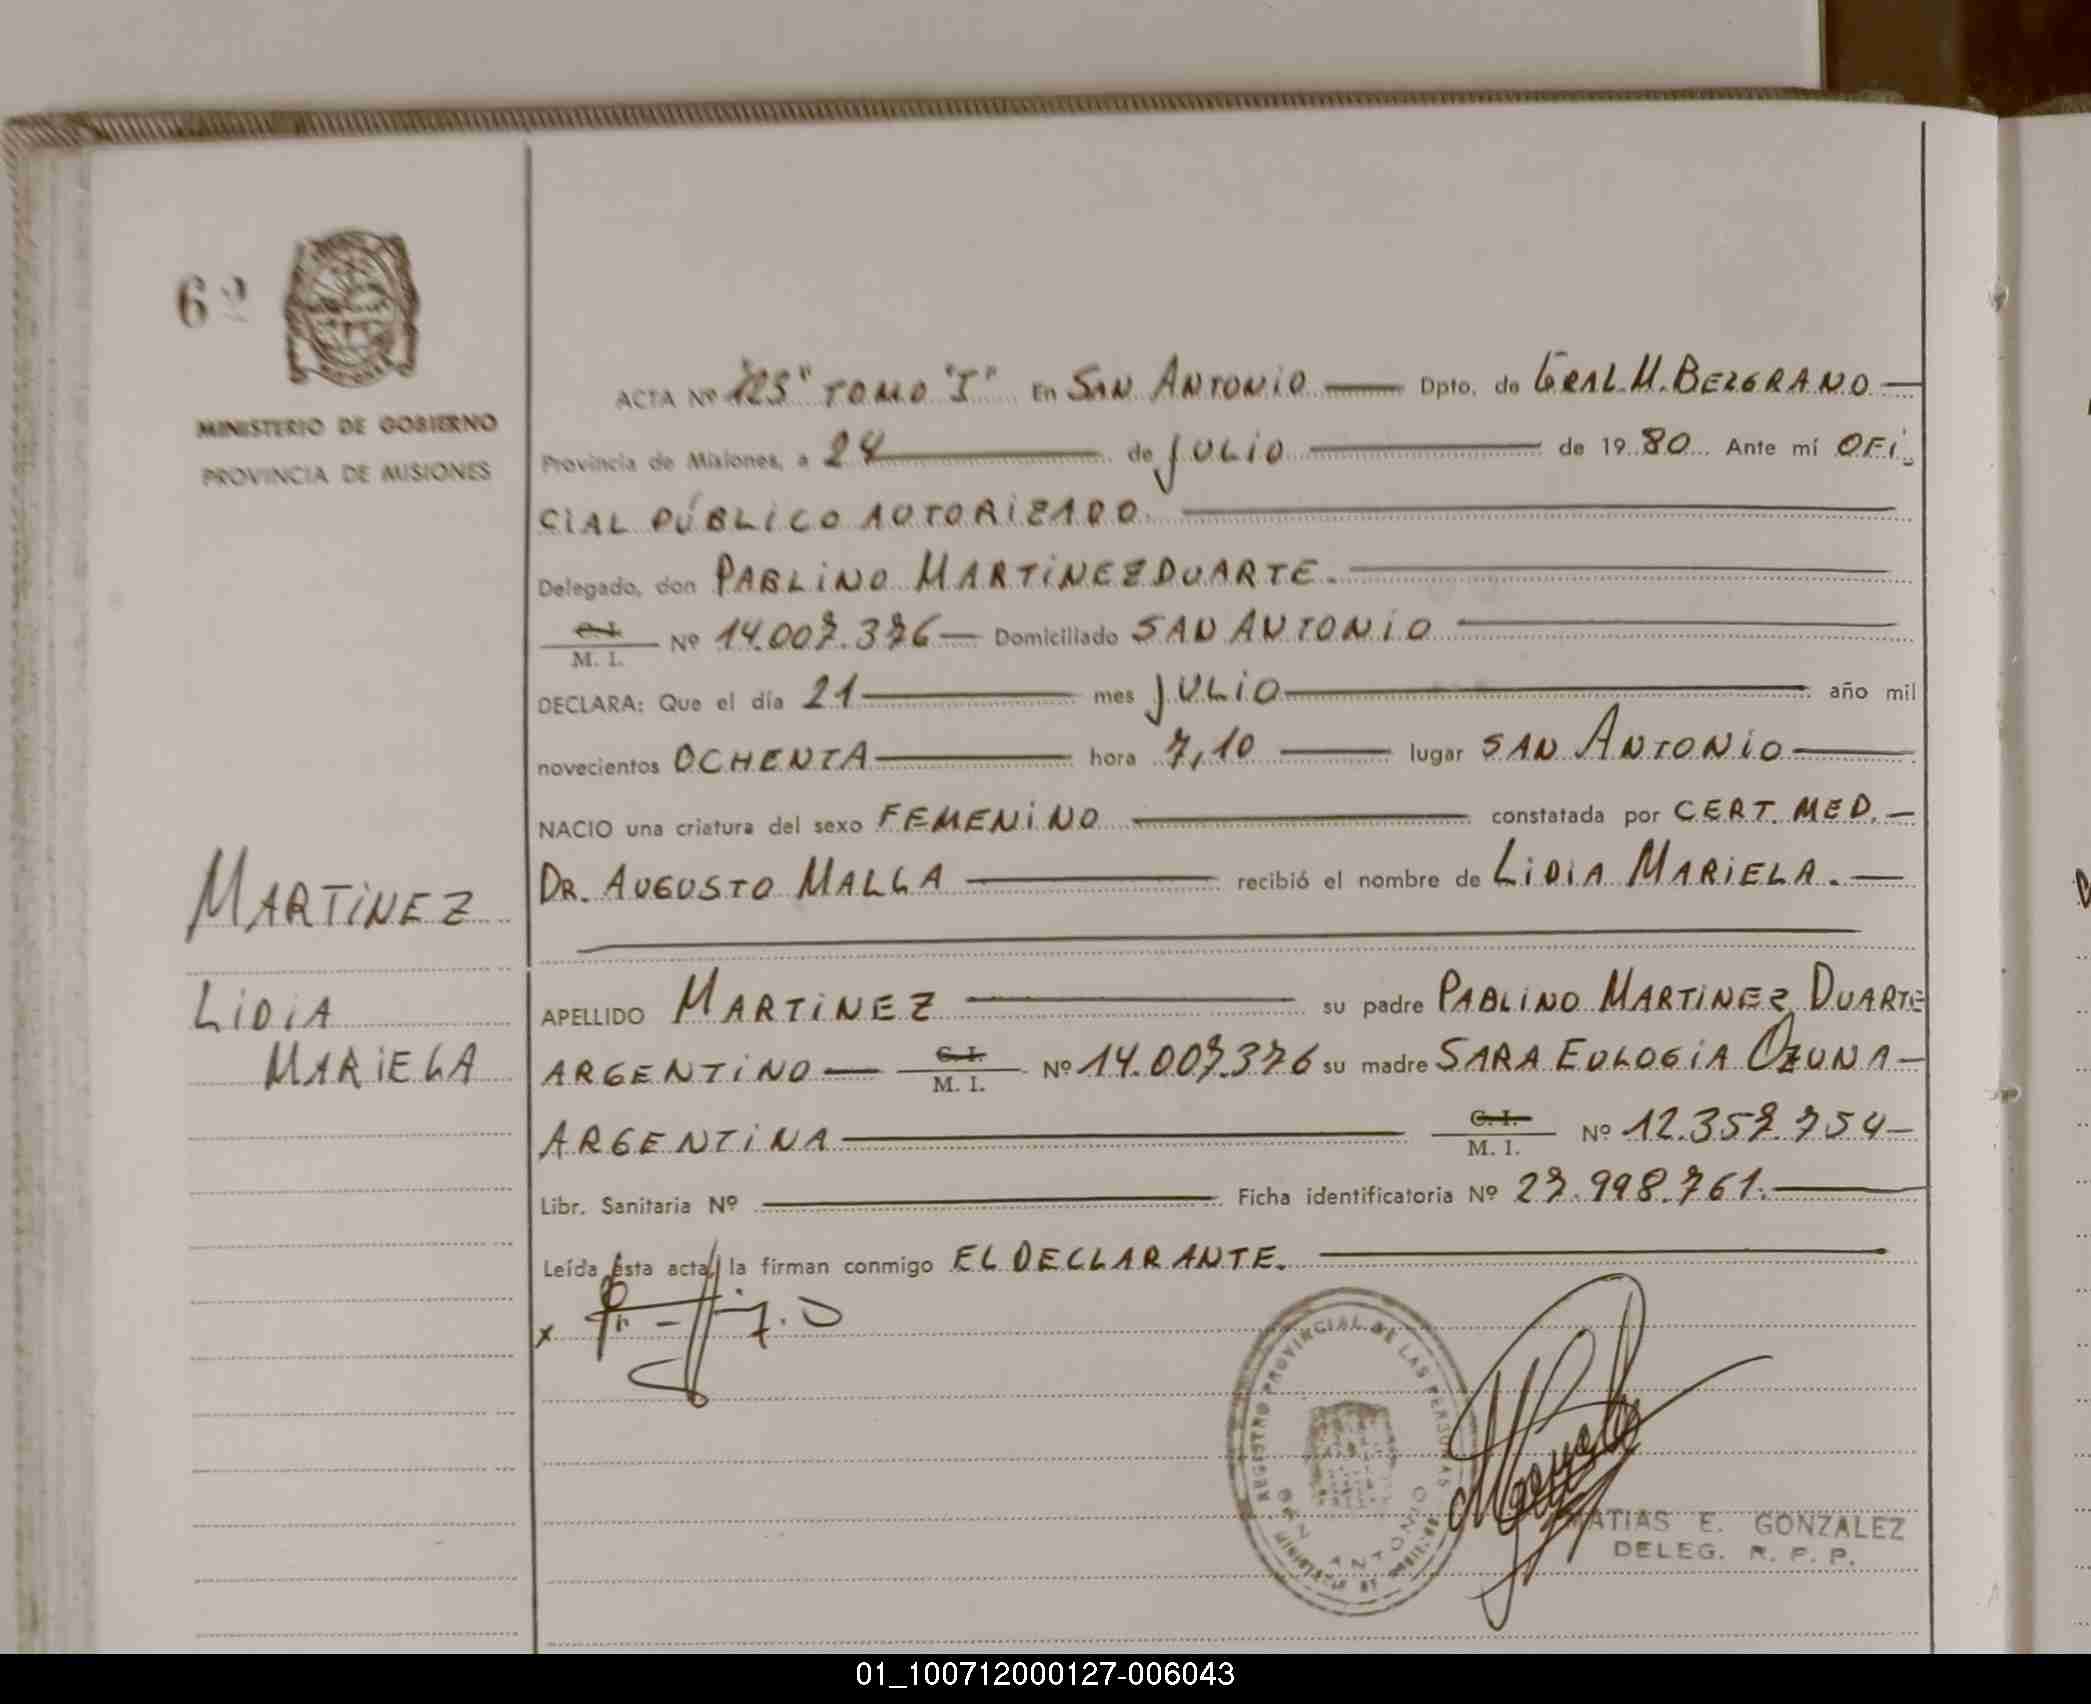 6º
MINISTERIO DE GOBIERNO
PROVINCIA DE MISIONES
ACTA Nº "125" TOMO "I" En SAN ANTONIO Dpto. de GRAL. M. BELGRANO
Provincia de Misiones, a 24 de JULIO de 1980. Ante mí OFI
CIAL PÚBLICO AUTORIZADO.
Delegado, don PABLINO MARTINEZ DUARTE.
C. I.
M. I. Nº 14.007.376 Domiciliado SAN ANTONIO
DECLARA: Que el día 21 mes JULIO año mil
novecientos OCHENTA hora 7,10 lugar SAN ANTONIO
NACIO una criatura del sexo FEMENINO constatada por CERT. MED.
DR. AUGUSTO MALLA recibió el nombre de LIDIA MARIELA.
MARTINEZ
LIDIA
MARIELA
APELLIDO MARTINEZ su padre PABLINO MARTINEZ DUARTE
ARGENTINO C. I. M. I. Nº 14.007.376 su madre SARA EULOGIA OZUNA
ARGENTINA C. I. M. I. Nº 12.357.754
Libr. Sanitaria Nº Ficha identificatoria Nº 27.998.761.
Leída ésta acta, la firman conmigo EL DECLARANTE.
x
REGISTRO PROVINCIAL DE LAS PERSONAS
SAN ANTONIO
MATIAS E. GONZALEZ
DELEG. R. P. P.
01_100712000127-006043